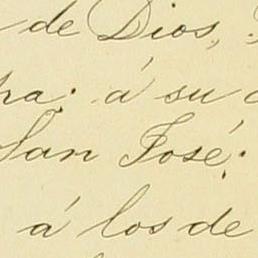 de Dios,
ra: á su
San José;
á los de